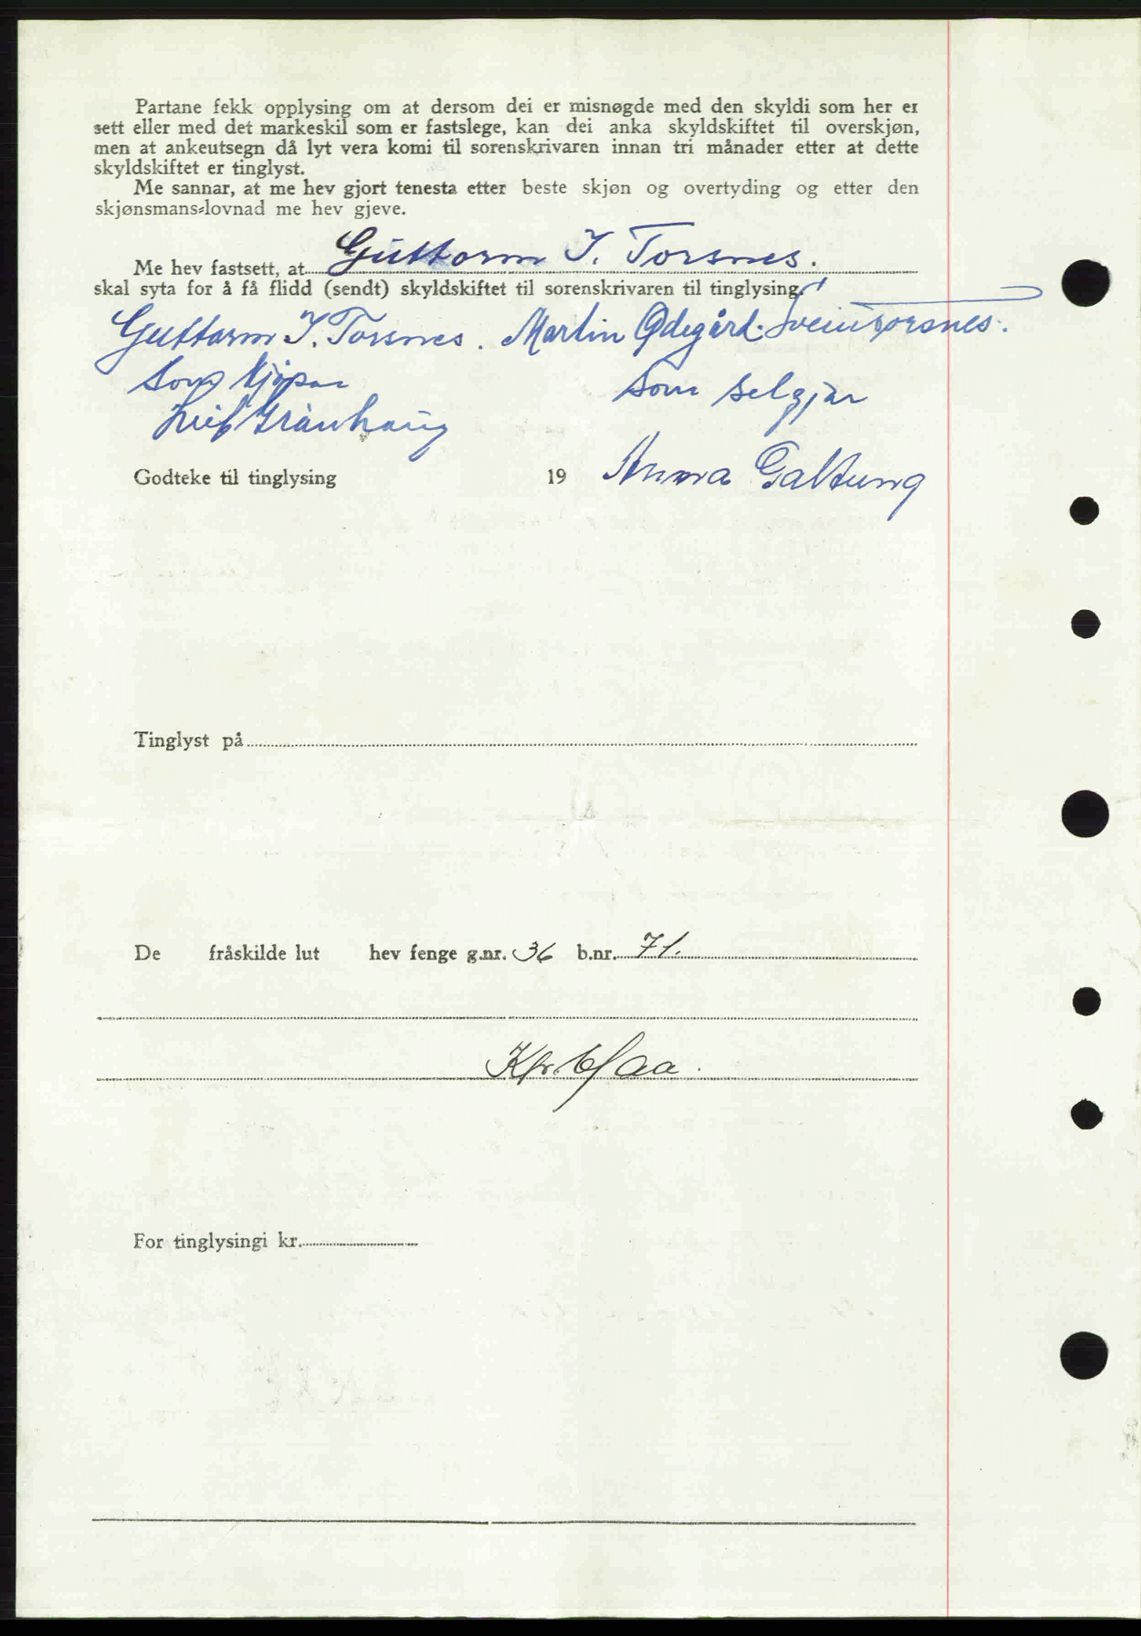 Partane fekk opplysing om at dersom dei er misnøgde med den skyldi som her er
sett eller med det markeskil som er fastslege, kan dei anka skyldskiftet til overskjøn,
men at ankeutsegn då lyt vera komi til sorenskrivaren innan tri månader etter at dette
skyldskiftet er tinglyst.
Me sannar, at me hev gjort tenesta etter beste skjøn og overtyding og etter den
skjønsmans-lovnad me hev gjeve.
Me hev fastsett, at Guttorm I. Torsnes.
skal syta for å få flidd (sendt) skyldskiftet til sorenskrivaren til tinglysing.
Guttorm I. Torsnes. Martin Ødegård. Svein Torsnes.
Som kjøpar Som seljar
Leif
Godteke til tinglysing 19 Anna Galtung
Tinglyst på
De fråskilde lut hev fenge g.nr. 36 b.nr. 71.
For tinglysingi kr.